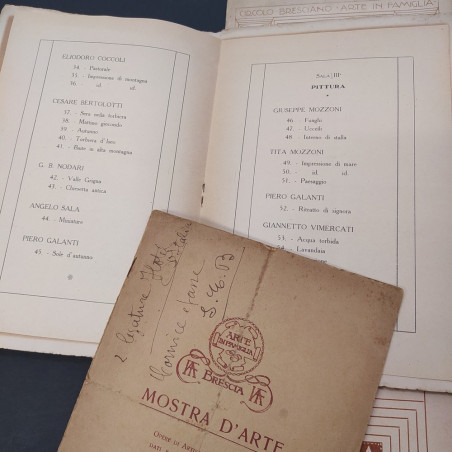 CIRCOLO BRESCIANO "ARTE IN FAMIGLIA"
ELIODORO COCCOLI
34. - Pastorale
35. - Impressione di montagna
36. - id. id.
CESARE BERTOLOTTI
37. - Sera nella torbiera
38. - Mattino
39. - Autunno
40. - Torbiera d'Iseo
41. - Baite in alta montagna
G. B. NODARI
42. - Valle Grigna
43. - Chiesetta antica
ANGELO SALA
44. - Miniature
PIERO GALANTI
45. - Sole d'autunno
SALA III^a
PITTURA
GIUSEPPE MOZZONI
46. - Funghi
47. - Uccelli
48. - Interno di stalla
TITA MOZZONI
49. - Impressione di mare
50. - id. id.
51. - Paesaggio
PIERO GALANTI
52. - Ritratto di signora
GIANNETTO VIMERCATI
53. - Acqua torbida
54. - Lavandaia
2 legature
Cornice
ARTE
IN FAMIGLIA
BRESCIA
MOSTRA D'ARTE
OPERE DI